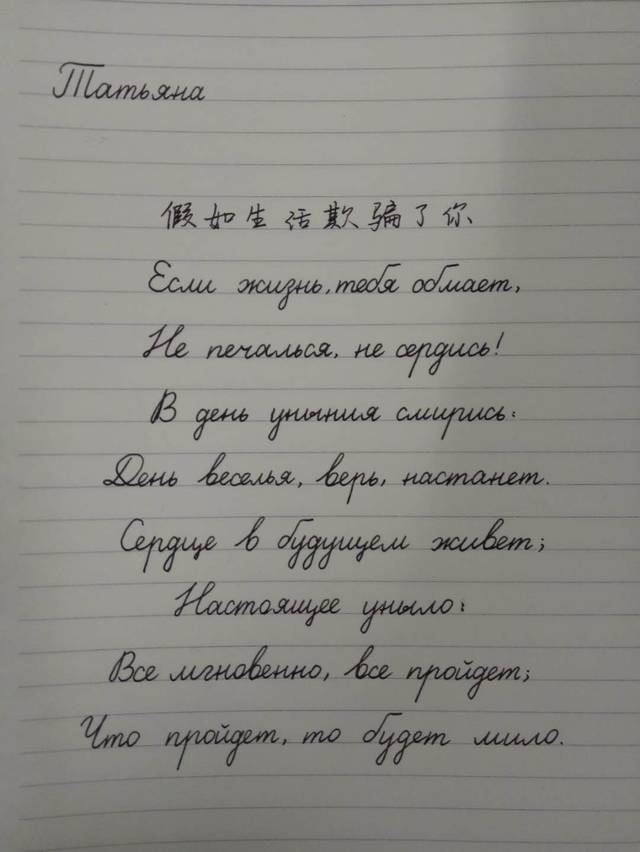 Татьяна
假如生活欺骗了你
Если жизнь, тебя обмает,
Не печалься, не сердись!
В день уныния смирись:
День веселья, верь, настанет.
Сердце в будущем живет;
Настоящее уныло:
Все мгновенно, все пройдет;
Что пройдет, то будет мило.